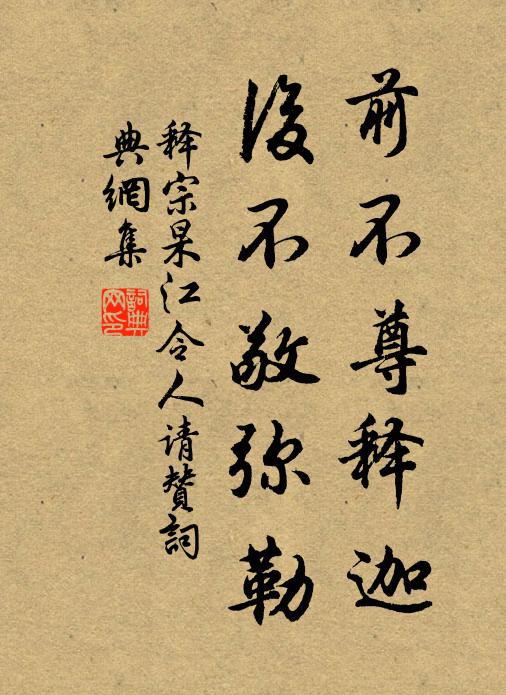 前不尊释迦
後不敬弥勒
释宗杲江令人请赞詞
典網集
詞典网印